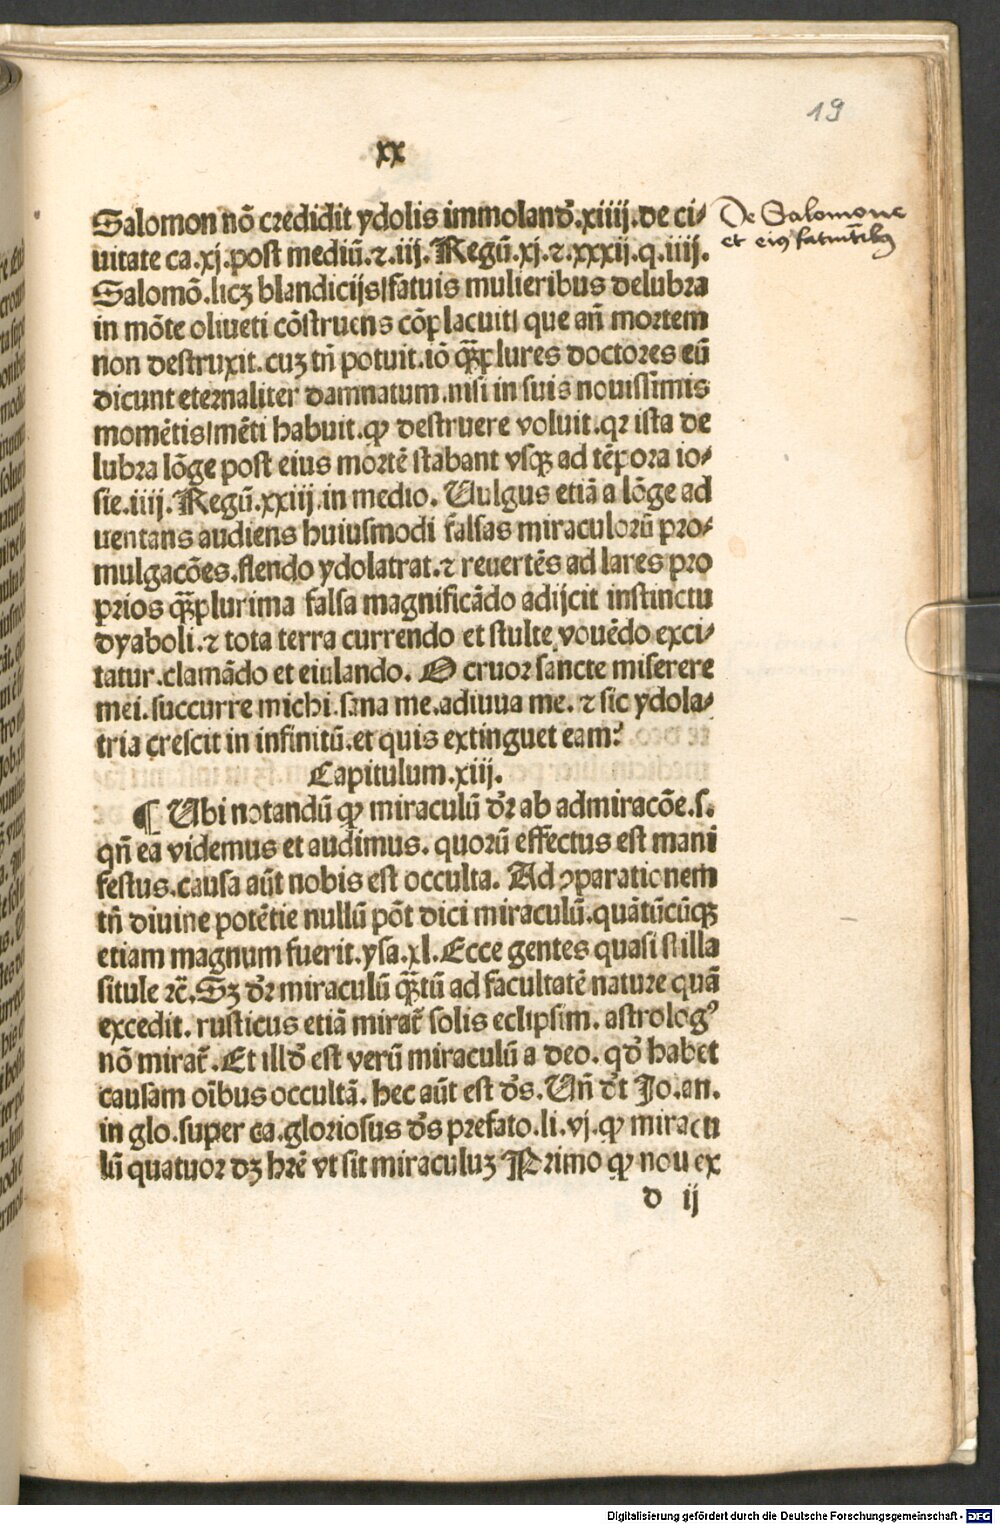 19
xx
Salomon nō credidit ydolis immoland̄.xiiij.de ci⸗
uitate ca.xj.post mediū.⁊.iij.Regū.xj.⁊.xxxij.q.iiij.
Salomō.licꝫ blandicijs/fatuis mulieribus delubra
in mōte oliueti cōstruens cōplacuit/ que an̄ mortem
non destruxit.cuꝫ tn̄ potuit.iō qᷓꝫplures doctores eū
dicunt eternaliter damnatum.nisi in suis nouissīmis
momētis/mēti habuit.ꝙ destruere voluit.qꝛ ista de
lubra lōge post eius mortē stabant vsqꝫ ad tēpora io⸗
sie.iiij.Regū.xxiij.in medio. Uulgus etiā a lōge ad
uentans audiens huiusmodi falsas miraculorū pro⸗
mulgacōes.flendo ydolatrat.⁊ reuertēs ad lares pro
prios qᷓꝫplurima falsa magnificādo adijcit instinctu
dyaboli.⁊ tota terra currendo et stulte vouēdo exci⸗
tatur.clamādo et eiulando. O cruor sancte miserere
mei.succurre michi.sana me.adiuua me. ⁊ sic ydola⸗
tria crescit in infinitū.et quis extinguet eam?
Capitulum.xiij.
¶ Ubi notandū ꝙ miraculū dr̄ ab admiracōe.s.
qn̄ ea videmus et audimus. quorū effectus est mani
festus.causa aūt nobis est occulta. Ad ꝯparationem
tn̄ diuine potētie nullū pōt dici miraculū.quātūcūqꝫ
etiam magnum fuerit.ysa.xl.Ecce gentes quasi stilla
situle rc̄.Sꝫ dr̄ miraculū qᷓꝫtū ad facultatē nature quā
excedit. rusticus etiā mirat̄ solis eclipsim. astrologꝰ
nō mirat̄.Et illd̄ est verū miraculū a deo. qd̄ habet
causam oībus occultā. hec aūt est d̄s. Un̄ d̄t Jo.an.
in glo.super ca.gloriosus d̄s prefato.li.vj.ꝙ miracu
lū quatuor dꝫ hr̄e vt sit miraculuꝫ Primo ꝙ nou ex
d ij
De Salomone
et eiꝰ fatuitatibꝰ
Digitalisierung gefördert durch die Deutsche Forschungsgemeinschaft - DFG